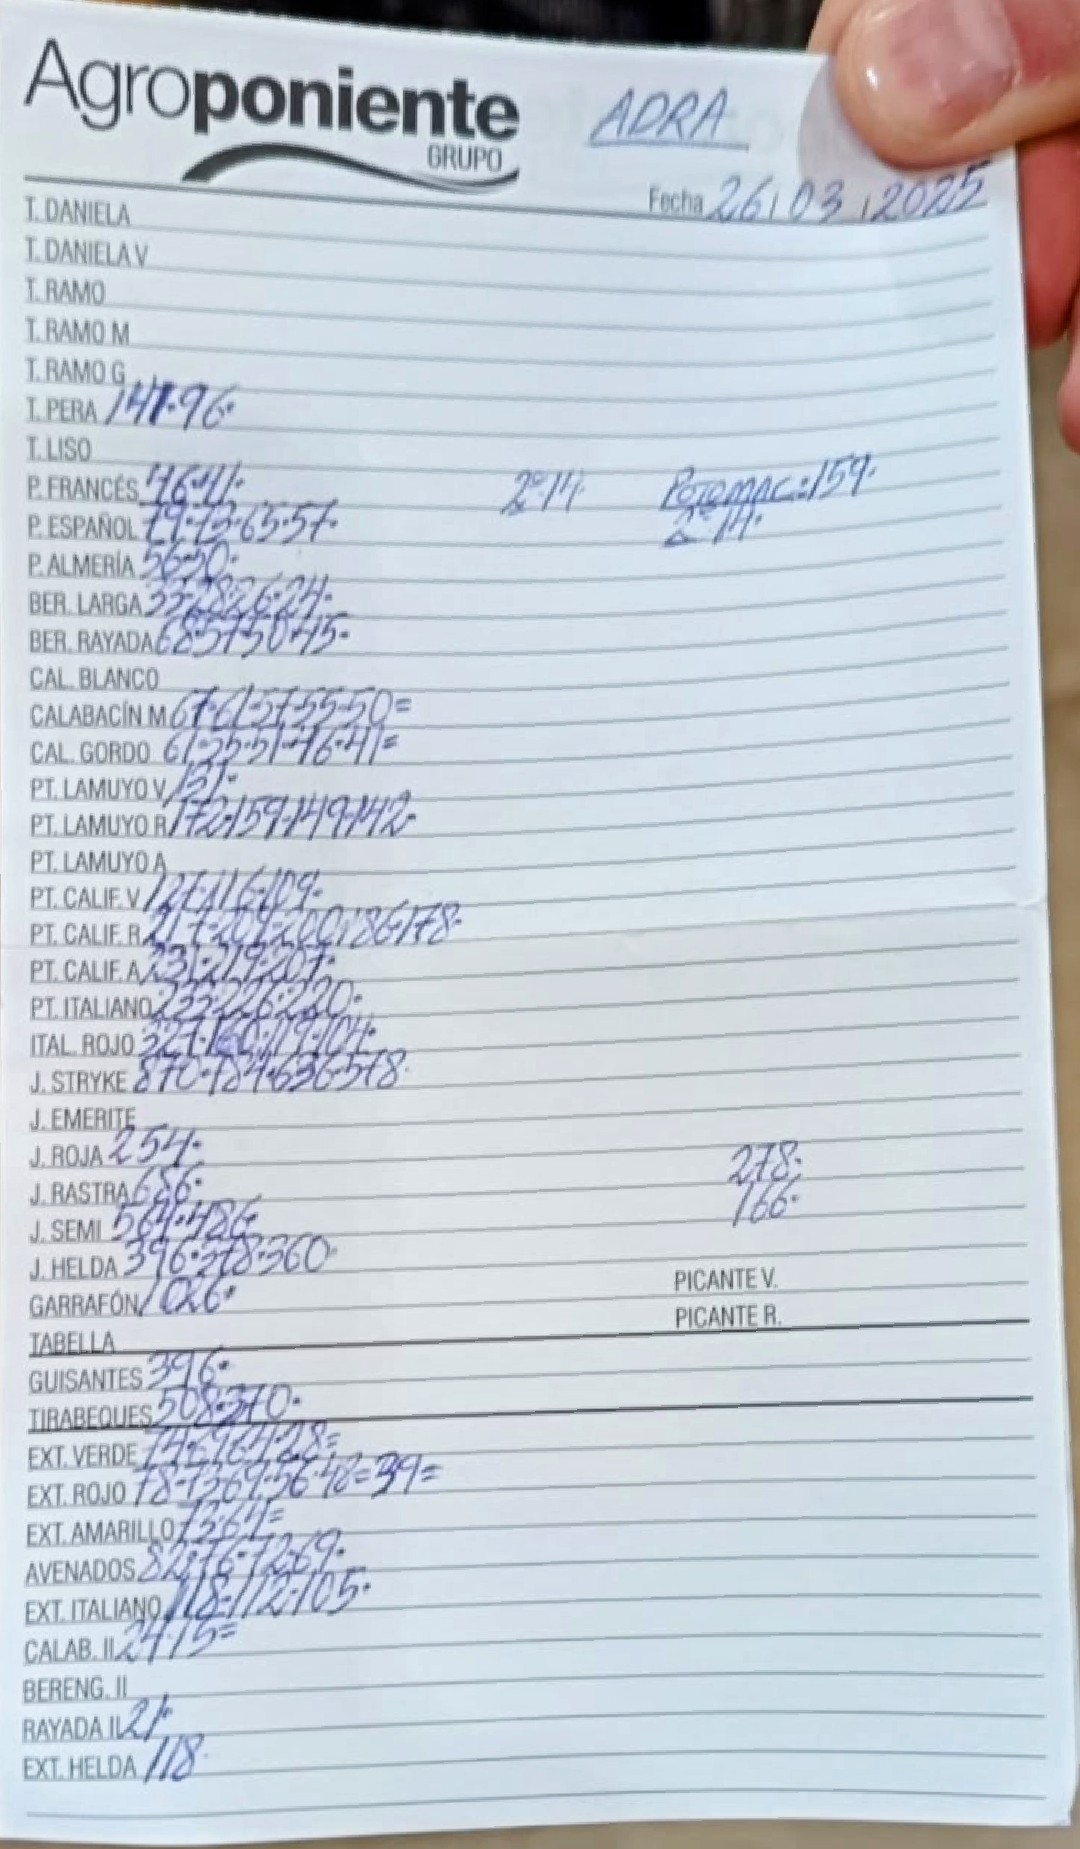 Agroponiente
GRUPO
ADRA
Fecha 26/03/2025
T. DANIELA
T. DANIELA V
T. RAMO
T. RAMO M
T. RAMO G
T. PERA 141-96-
T. LISO
P. FRANCÉS 46-41- 2ª-14 POTOMAC:159-
P. ESPAÑOL 79-73-65-57- 2ª 14-
P. ALMERÍA 56-50-
BER. LARGA 33-28-26-24-
BER. RAYADA 68-57-50-45-
CAL. BLANCO
CALABACÍN M 67-61-57-55-50=
CAL. GORDO 61-55-51-46-41=
PT. LAMUYO V 151-
PT. LAMUYO R 172-159-149-142-
PT. LAMUYO A
PT. CALIF. V 127-116-109-
PT. CALIF. R 217-209-200-186-178-
PT. CALIF. A 231-219-207-
PT. ITALIANO 233-226-220-
ITAL. ROJO 327-160-119-104-
J. STRYKE 870-784-636-578-
J. EMERITE
J. ROJA 254-
J. RASTRA 686- 278-
J. SEMI 564-486- 166-
J. HELDA 396-378-360-
GARRAFÓN 1026- PICANTE V.
TABELLA PICANTE R.
GUISANTES 396-
TIRABEQUES 508-370-
EXT. VERDE
EXT. ROJO 78-73-69-56-48=39=
EXT. AMARILLO 73-64=
AVENADOS 82-76-72-69-
EXT. ITALIANO 118-112-105-
CALAB. II 24-15=
BERENG. II
RAYADA II 21-
EXT. HELDA 118-